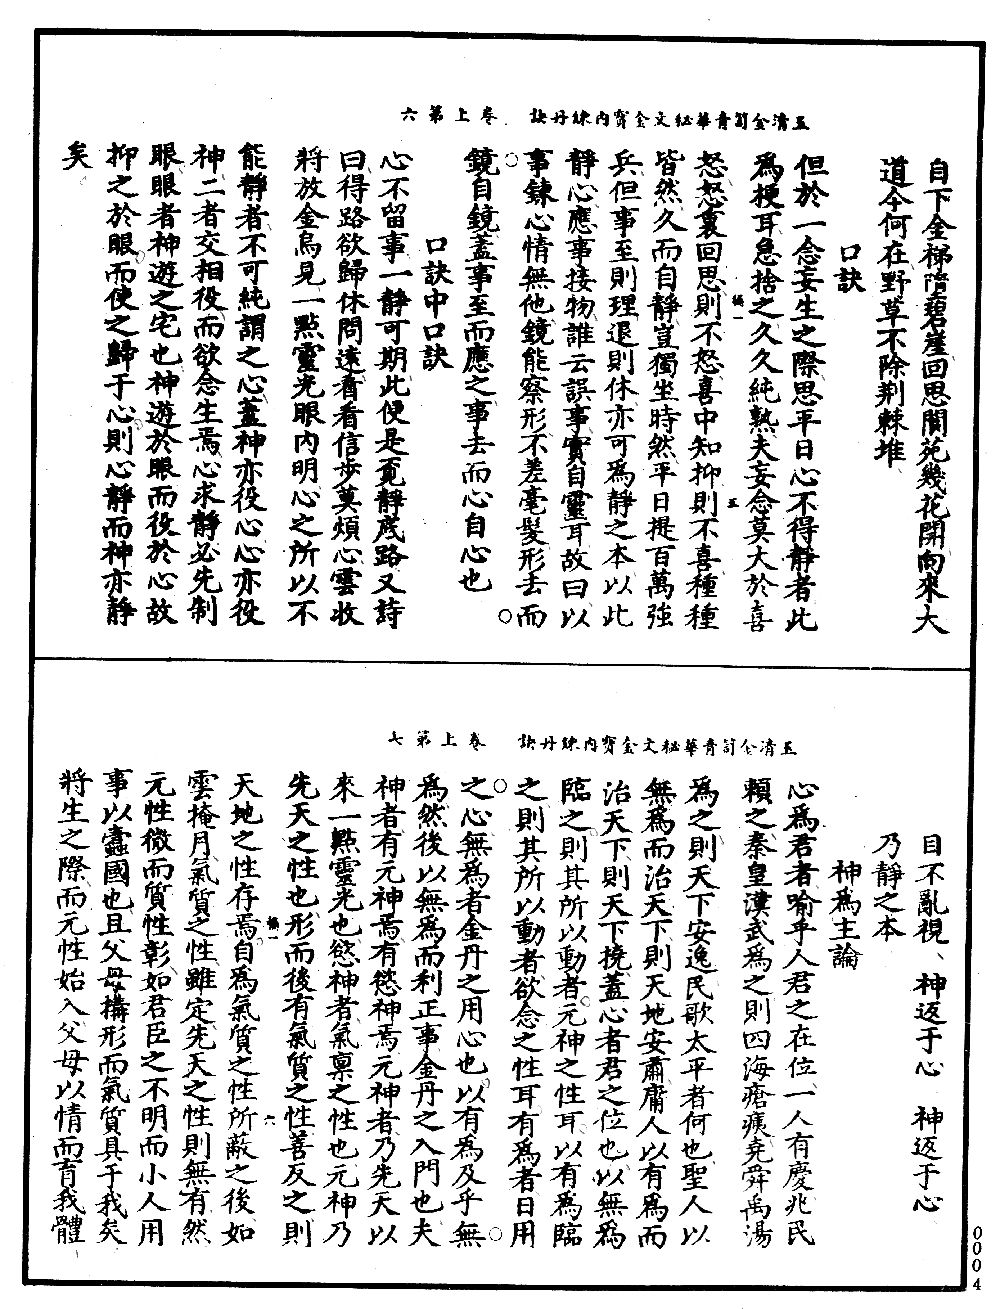 玉清金笥青華秘文金寶內鍊丹訣　卷上第六
自下金梯墮碧崖回思閬苑幾花開向來大
道今何在野草不除荆棘堆
口訣
但於一念妄生之際思平日心不得靜者此
爲梗耳急捨之久久純熟夫妄念莫大於喜
怒怒裏回思則不怒喜中知抑則不喜種種
皆然久而自靜豈獨坐時然平日提百萬強
兵但事至則理退則休亦可爲靜之本以此
靜心應事接物誰云誤事實自靈耳故曰以
事鍊心情無他鏡能察形不差毫髮形去而
鏡自鏡蓋事至而應之事去而心自心也
口訣中口訣
心不留事一靜可期此便是覓靜底路又詩
曰得路欲歸休問遠看看信步莫煩心雲收
將放金烏見一點靈光眼內明心之所以不
能靜者不可純謂之心蓋神亦役心心亦役
神二者交相役而欲念生焉心求靜必先制
眼眼者神遊之宅也神遊於眼而役於心故
抑之於眼而使之歸于心則心靜而神亦靜
矣
玉清金笥青華秘文金寶內鍊丹訣　卷上第七
目不亂視、神返于心　神返于心
乃靜之本
神爲主論
心爲君者喻乎人君之在位一人有慶兆民
賴之秦皇漢武爲之則四海瘡痍堯舜禹湯
爲之則天下安逸民歌太平者何也聖人以
無爲而治天下則天地安肅庸人以有爲而
治天下則天下撓蓋心者君之位也以無爲
臨之則其所以動者元神之性耳以有爲臨
之則其所以動者欲念之性耳有爲者日用
之心無爲者金丹之用心也以有爲及乎無
爲然後以無爲而利正事金丹之入門也夫
神者有元神焉有慾神焉元神者乃先天以
來一點靈光也慾神者氣禀之性也元神乃
先天之性也形而後有氣質之性善反之則
天地之性存焉自爲氣質之性所蔽之後如
雲掩月氣質之性雖定先天之性則無有然
元性微而質性彰如君臣之不明而小人用
事以蠹國也且父母搆形而氣質具于我矣
將生之際而元性始入父母以情而育我體
0004